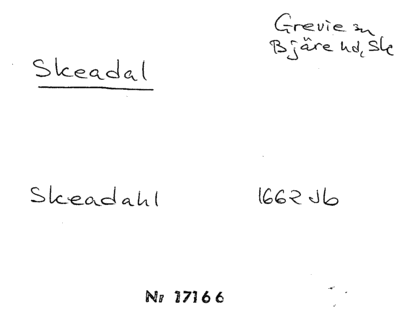 Grevie sn
Bjäre hd, Sk
Skeadal
Skeadahl 1662 Jb
Nr 17166